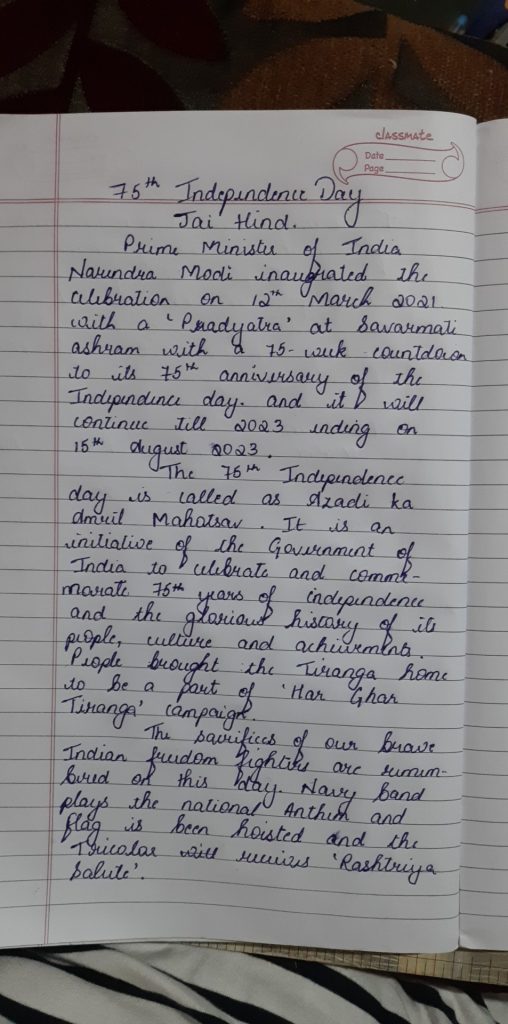 classmate
Date
Page
75th Independence Day
Jai Hind.
Prime Minister of India
Narendra Modi inaugrated the
celebration on 12th March 2021
with a 'Pradyatra' at Savarmati
ashram with a 75-week countdown
to its 75th anniversary of the
Independence day. and it will
continue till 2023 ending on
15th August 2023.
The 75th Independence
day is called as Azadi ka
Amrit Mahotsav. It is an
initiative of the Government of
India to celebrate and comme-
marate 75th years of independence
and the glorious history of its
people, culture and achievments.
People brought the Tiranga home
to be a part of 'Har Ghar
Tiranga' campaign.
The sacrifices of our brave
Indian freedom fighters are remem-
bered on this day. Navy band
plays the national Anthem and
flag is been hoisted and the
Tricolar will receives 'Rashtriya
Salute'.